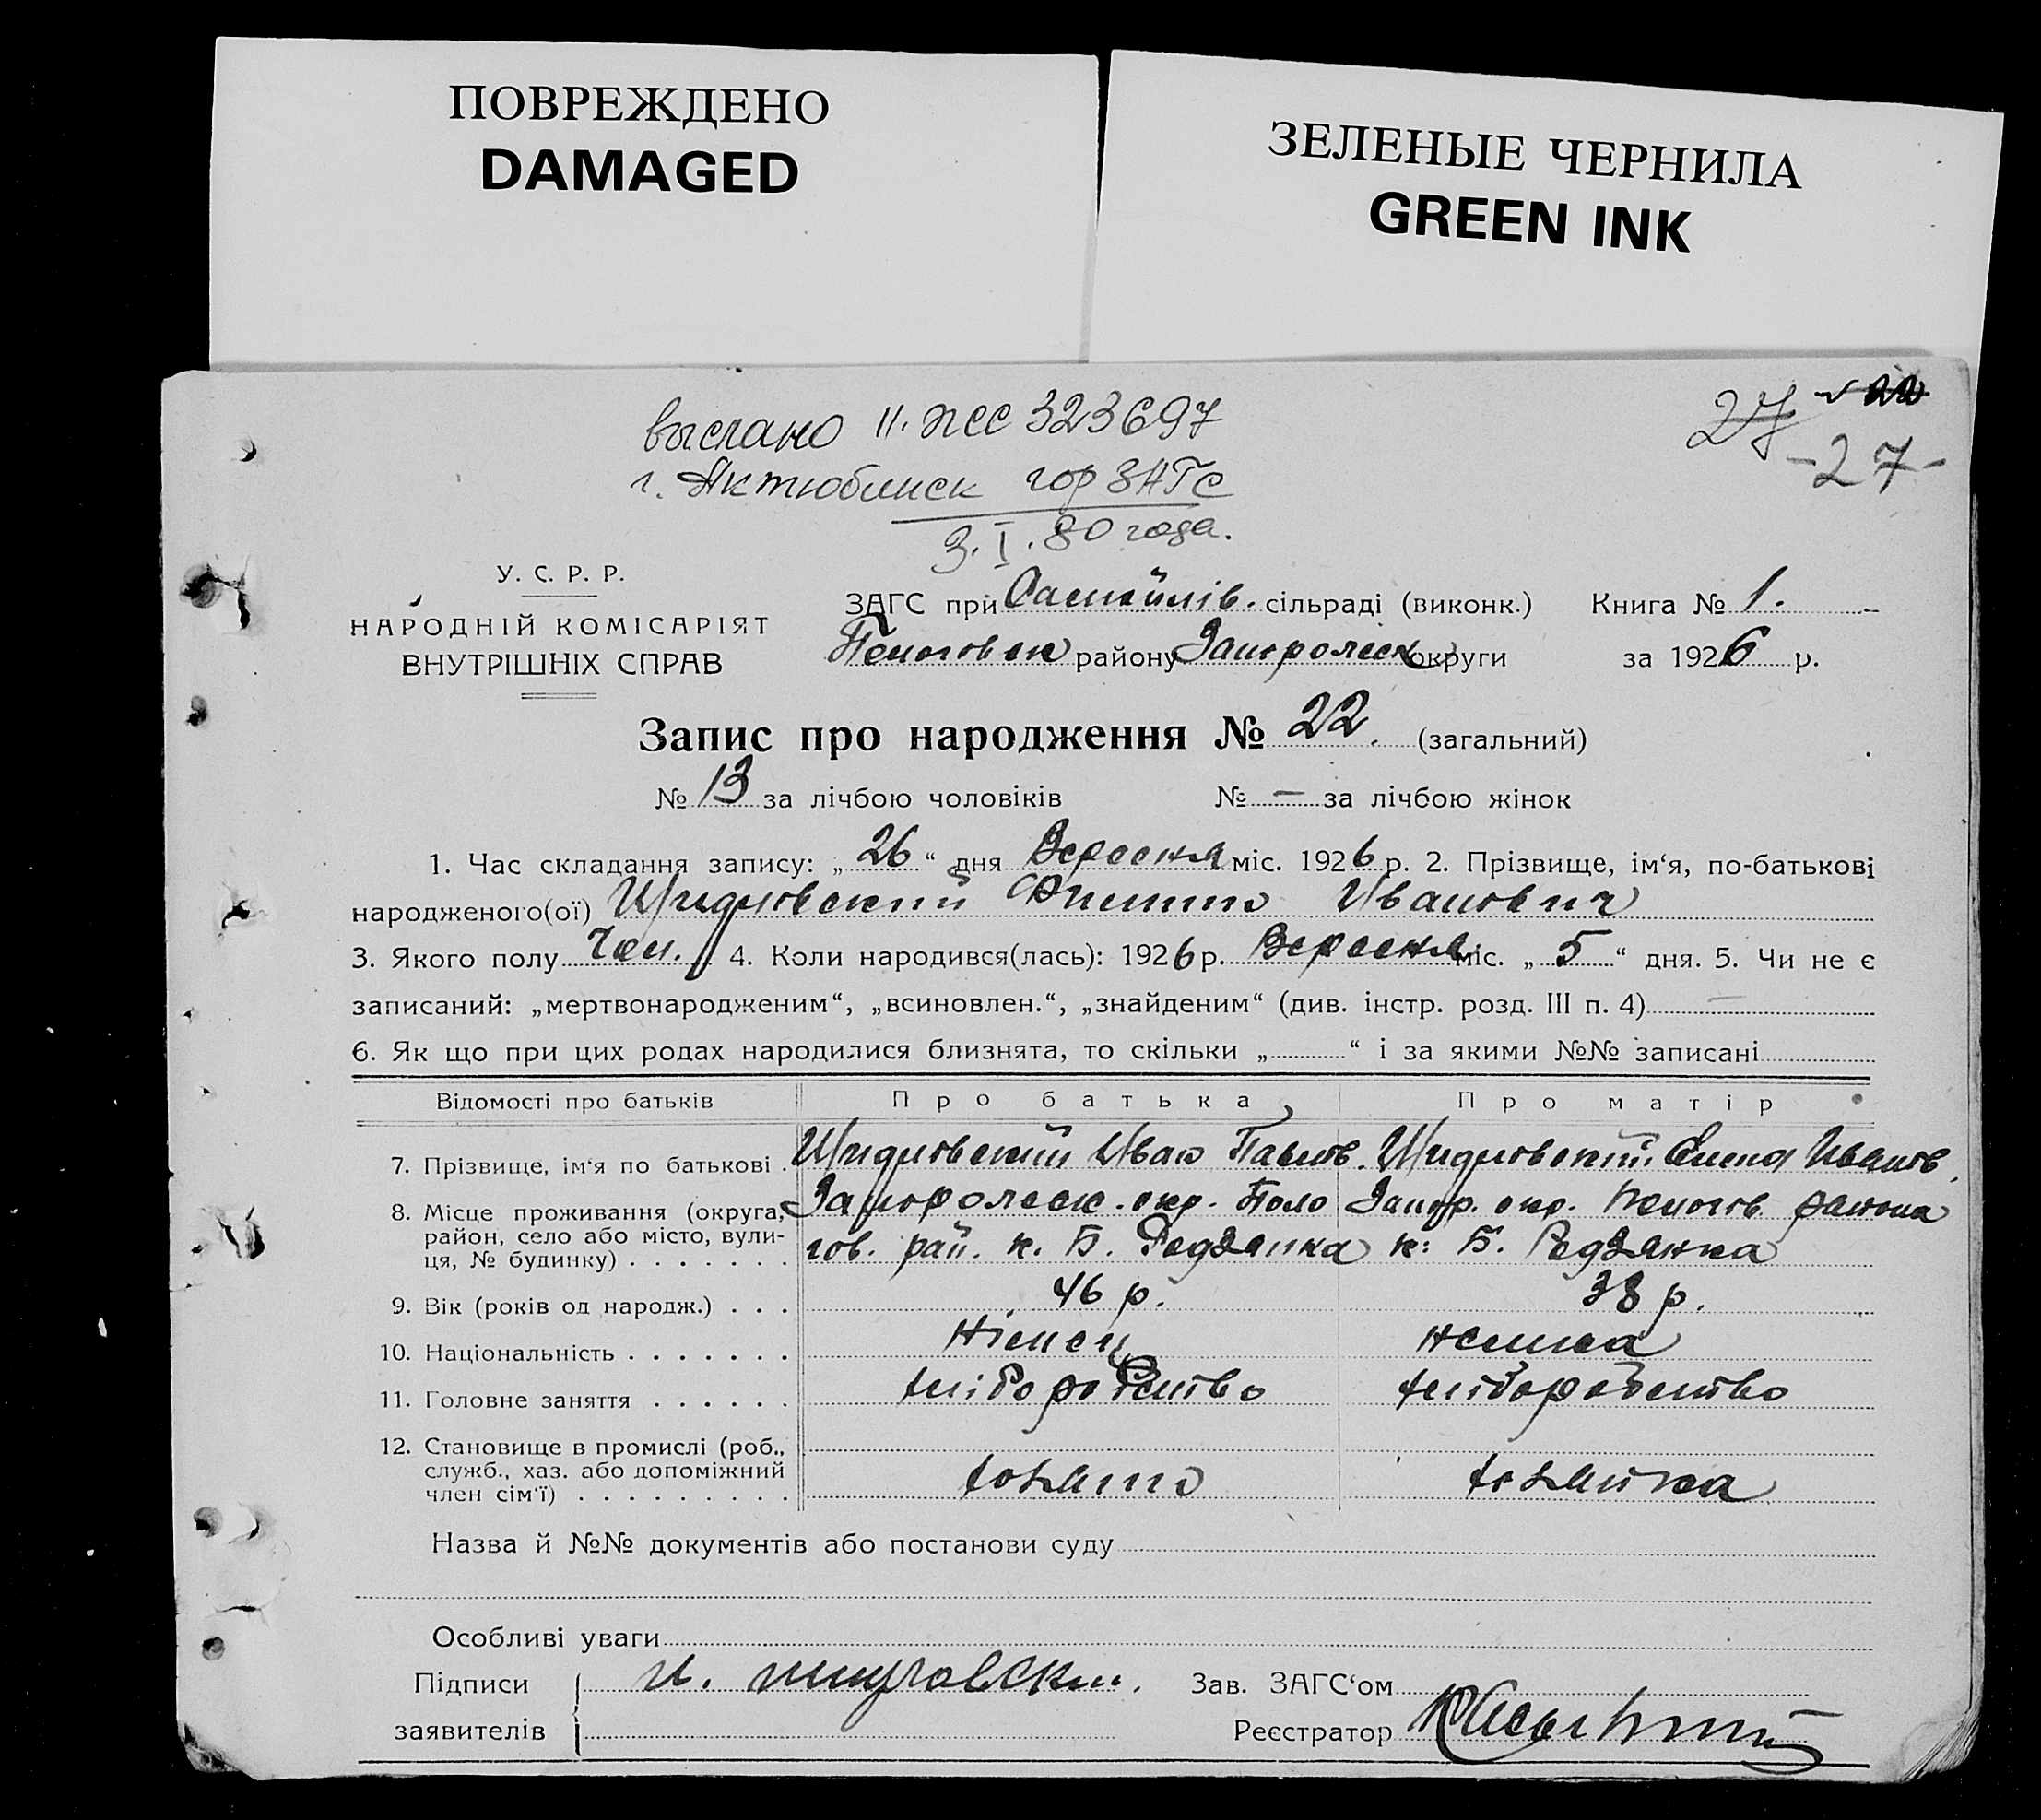 ПОВРЕЖДЕНО
DAMAGED
ЗЕЛЕНЫЕ ЧЕРНИЛА
GREEN INK
27 22
-27-
выслано 323697
г. Актюбинск горЗАГС
3.I.80 года.
У. С. Р. Р.
НАРОДНІЙ КОМІСАРІЯТ
ВНУТРІШНІХ СПРАВ
ЗАГС при сільраді (виконк.) Книга № 1.
району округи за 1926 р.
Запис про народження № 22. (загальний)
№ 13 за лічбою чоловіків № — за лічбою жінок
1. Час складання запису: „26“ дня Вересня міс. 1926 р. 2. Прізвище, ім‘я, по-батькові
народженого(ої) Иванович
3. Якого полу Чол. 4. Коли народився(лась): 1926 р. Вересня міс. „5“ дня. 5. Чи не є
записаний: „мертвонародженим“, „всиновлен.“, „знайденим“ (див. інстр. розд. III п. 4) —
6. Як що при цих родах народилися близнята, то скільки „ “ і за якими №№ записані
Відомості про батьків Про батька Про матір
7. Прізвище, ім‘я по батькові Иван Павлов. Иванов.
8. Місце проживання (округа, окр. Поло Запор. окр. района
район, село або місто, вули- гов. рай. к. Б. Редзанка к. Б. Редзанка
ця, № будинку)
9. Вік (років од народж.) 46 р. 38 р.
10. Національність німец немка
11. Головне заняття хліборобство хліборобство
12. Становище в промислі (роб.,
служб., хаз. або допоміжний
член сім‘ї) хозяїн хозяйка
Назва й №№ документів або постанови суду
Особливі уваги
Підписи Зав. ЗАГС‘ом
заявителів Реєстратор